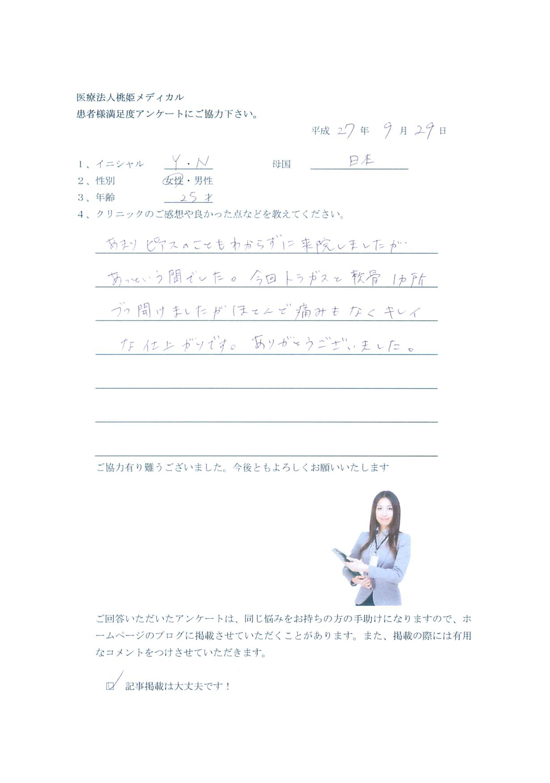 医療法人桃姫メディカル
患者様満足度アンケートにご協力下さい。
平成 27 年 9 月 29 日
1、イニシャル Y・N 母国 日本
2、性別 女性・男性
3、年齢 25才
4、クリニックのご感想や良かった点などを教えてください。
あまりピアスのこともわからずに来院しましたが
あっという間でした。今回トラガスと軟骨1カ所
づつ開けましたがほとんど痛みもなくキレイ
な仕上がりです。ありがとうございました。
ご協力有り難うございました。今後ともよろしくお願いいたします
ご回答いただいたアンケートは、同じ悩みをお持ちの方の手助けになりますので、ホ
ームページのブログに掲載させていただくことがあります。また、掲載の際には有用
なコメントをつけさせていただきます。
記事掲載は大丈夫です！